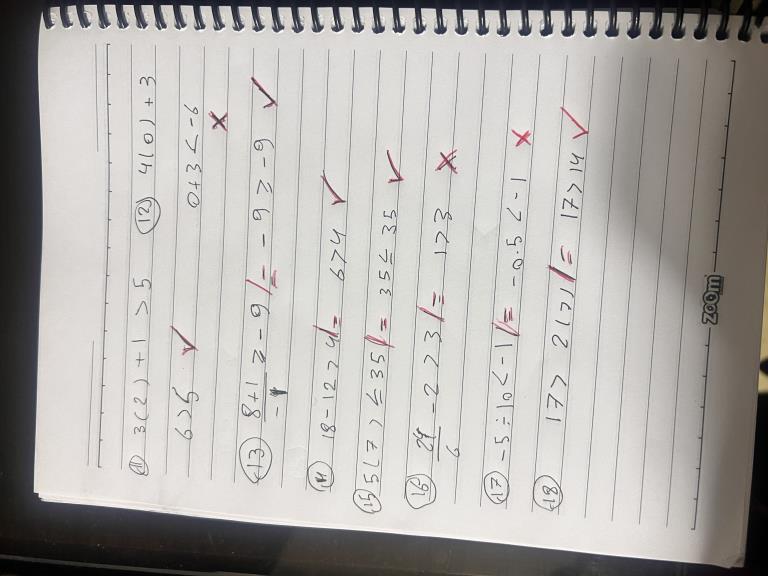 ⑪ 3(2)+1 > 5 ⑫ 4(0)+3
6>5 ✓ 0+3 < -6
✗
⑬ 8+1/-1 ≥ -9 = -9 ≥ -9 ✓
⑭ 18-12 > 4 = 6>4 ✓
⑮ 5(7) ≤ 35 = 35 ≤ 35 ✓
⑯ 24/6 - 2 > 3 = 1>3 ✗
⑰ -5÷10 < -1 = -0.5 < -1 ✗
⑱ 17 > 2(7) = 17>14 ✓
zoom